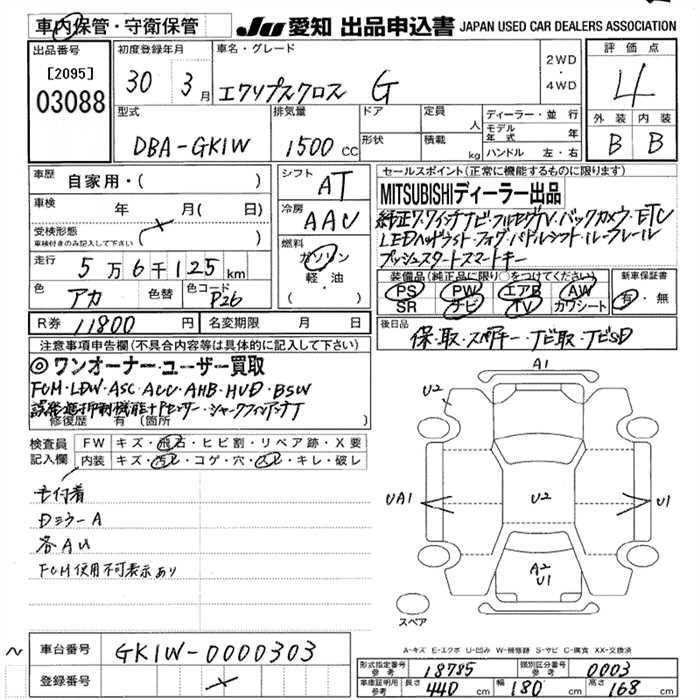 車内保管・守衛保管
JU 愛知 出品申込書 JAPAN USED CAR DEALERS ASSOCIATION
出品番号
[2095]
03088
初度登録年月
30年 3月
車名・グレード
エクリプスクロス G
2WD
・
4WD
評価点
4
外装 内装
B B
型式
DBA-GK1W
排気量
1500 CC
ドア
形状
定員 人
積載 kg
ディーラー・並行
モデル年式 年
ハンドル 左・右
車歴
自家用・( )
車検 年 月( 日)
受検形態
車検付きのみ記入して下さい
走行
5万6千125km
色
アカ
色替
色コード
P26
シフト
AT
冷房
AAC
燃料
ガソリン
軽・油
( )
セールスポイント(正常に機能するものに限ります)
MITSUBISHIディーラー出品
純正7.7インチナビ・フルセグTV・バックカメラ・ETC
LEDヘッドライト・フォグ・パドルシフト・ルーフレール
プッシュスタートスマートキー
装備品(純正品に限り○をつけてください)
PS PW エアB AW
SR ナビ TV カワシート
新車保証書
有・無
R券 11800円
名変期限 月 日
後日品
保・取・スペアキー・ナビ取・ナビSD
注意事項申告欄(不具合内容等は具体的に記入して下さい)
◎ワンオーナー・ユーザー買取
FCM・LDW・ASC・ACC・AHB・HUD・BSW
誤発進抑制機能+Pセンサー・シャークフィンアンテナ
修復歴 有 (箇所 )
検査員記入欄
FW キズ・飛石・ヒビ割・リペア跡・X要
内装 キズ・汚レ・コゲ・穴・スレ・キレ・破レ
Dミラー A
各AU
FCM使用不可表示あり
A1
U2
UA1
U2
U1
A2
U1
スペア
A-キズ E-エクボ U-凹み W-補修跡 S-サビ C-腐食 XX-交換済
~
車台番号 GK1W-0000303
登録番号
形式指定番号 参考 18785
類別区分番号 参考 0003
車庫証明用 参考 長さ 440 cm 幅 180 cm 高さ 168 cm